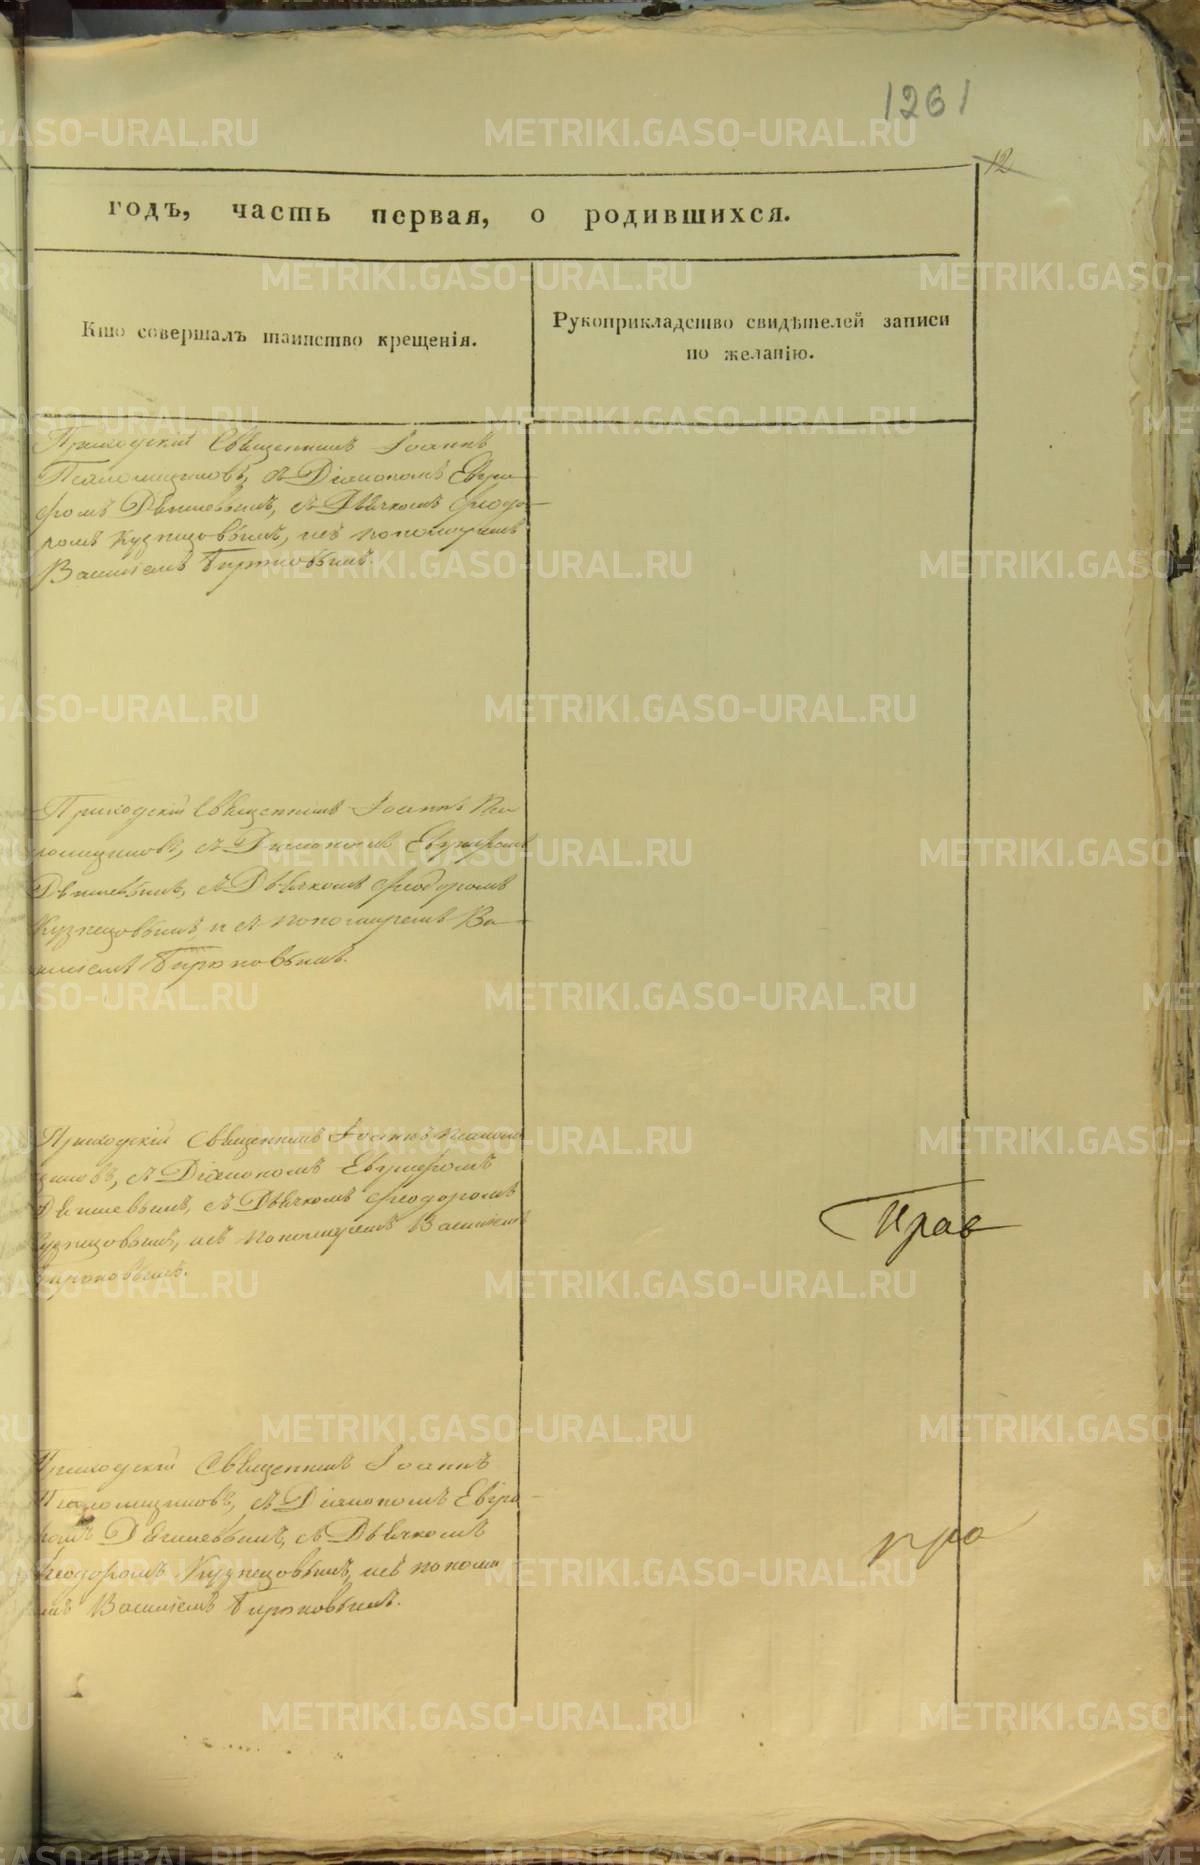 1261
12
годъ, часть первая, о родившихся.
Кто совершалъ таинство крещенія.
Рукоприкладство свидѣтелей записи
по желанію.
Приходскій Священникъ Іоаннъ
съ Діакономъ Евгра-
фомъ съ Дьячкомъ Ѳеодо-
ромъ Кузнецовымъ, и съ пономаремъ
Василіемъ Бирюковымъ.
Приходскій Священникъ Іоаннъ
съ Діакономъ Евграфомъ
съ Дьячкомъ Ѳеодоромъ
Кузнецовымъ и съ пономаремъ Ва-
силіемъ Бирюковымъ.
Приходскій Священникъ Іоаннъ
съ Діакономъ Евграфомъ
съ Дьячкомъ Ѳеодоромъ
Кузнецовымъ, и съ пономаремъ Василіемъ
Бирюковымъ.
Прав
Приходскій Священникъ Іоаннъ
съ Діакономъ Евгра-
фомъ съ Дьячкомъ
Ѳеодоромъ Кузнецовымъ, и съ понома
Василіемъ Бирюковымъ.
METRIKI.GASO-URAL.RU